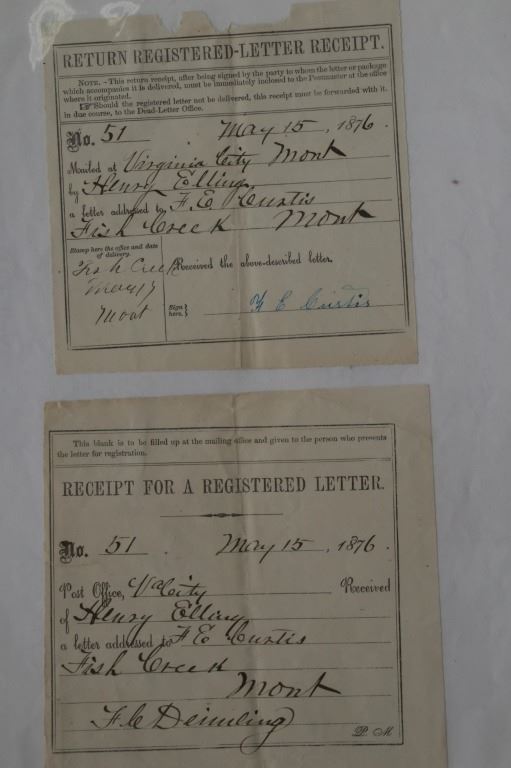 RETURN REGISTERED-LETTER RECEIPT.
NOTE.-This return receipt, after being signed by the party to whom the letter or package
which accompanies it is delivered, must be immediately inclosed to the Postmaster at the office
where it originated.
☞Should the registered letter not be delivered, this receipt must be forwarded with it,
in due course, to the Dead-Letter Office.
No. 51 May 15, 1876
Mailed at Virginia City Mont
by Henry Elling
a letter addressed to F. E. Curtis
Fish Creek Mont
Stamp here the office and date
of delivery.
Fish Creek
May 17
Mont
Received the above-described letter.
Sign
here.} F E Curtis
This blank is to be filled up at the mailing office and given to the person who presents
the letter for registration.
RECEIPT FOR A REGISTERED LETTER.
No. 51. May 15, 1876.
Post Office, Va City Received
of Henry Elling
a letter addressed to F E Curtis
Fish Creek
Mont
F. C. Deimling
P. M